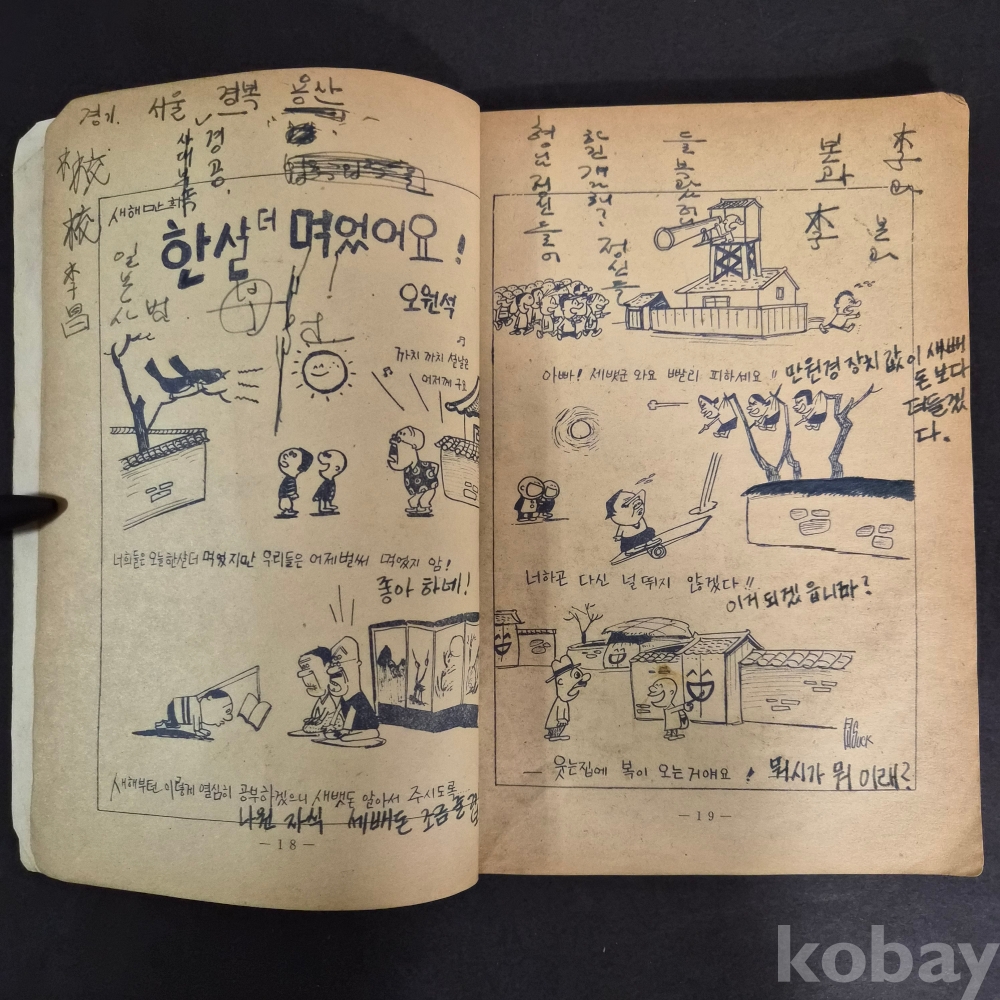 경기. 서울 경복 용산
사대부속
경공.
校
校
李
昌
새해만화
한살더 먹었어요!
오원석
일본
까치 까치 설날은
어저께 구요
너희들은 오늘 한살 더 먹었지만 우리들은 어제 벌써 먹었지 암!
좋아 하네!
새해부턴 이렇게 열심히 공부하겠으니 새뱃돈 알아서 주시도록
나원 자식 세배돈 조금
— 18 —
李
본과
李
정신들
아빠! 세뱃군 와요 빨리 피하세요!!
만원경 장치 값이 새빼
돈 보다
더들겠
다.
너하곤 다신 널 뛰지 않겠다!!
이거 되겠읍니까?
SUCK
— 웃는집에 복이 오는거얘요!
뭐시가 뭐 이래?
— 19 —
kobay